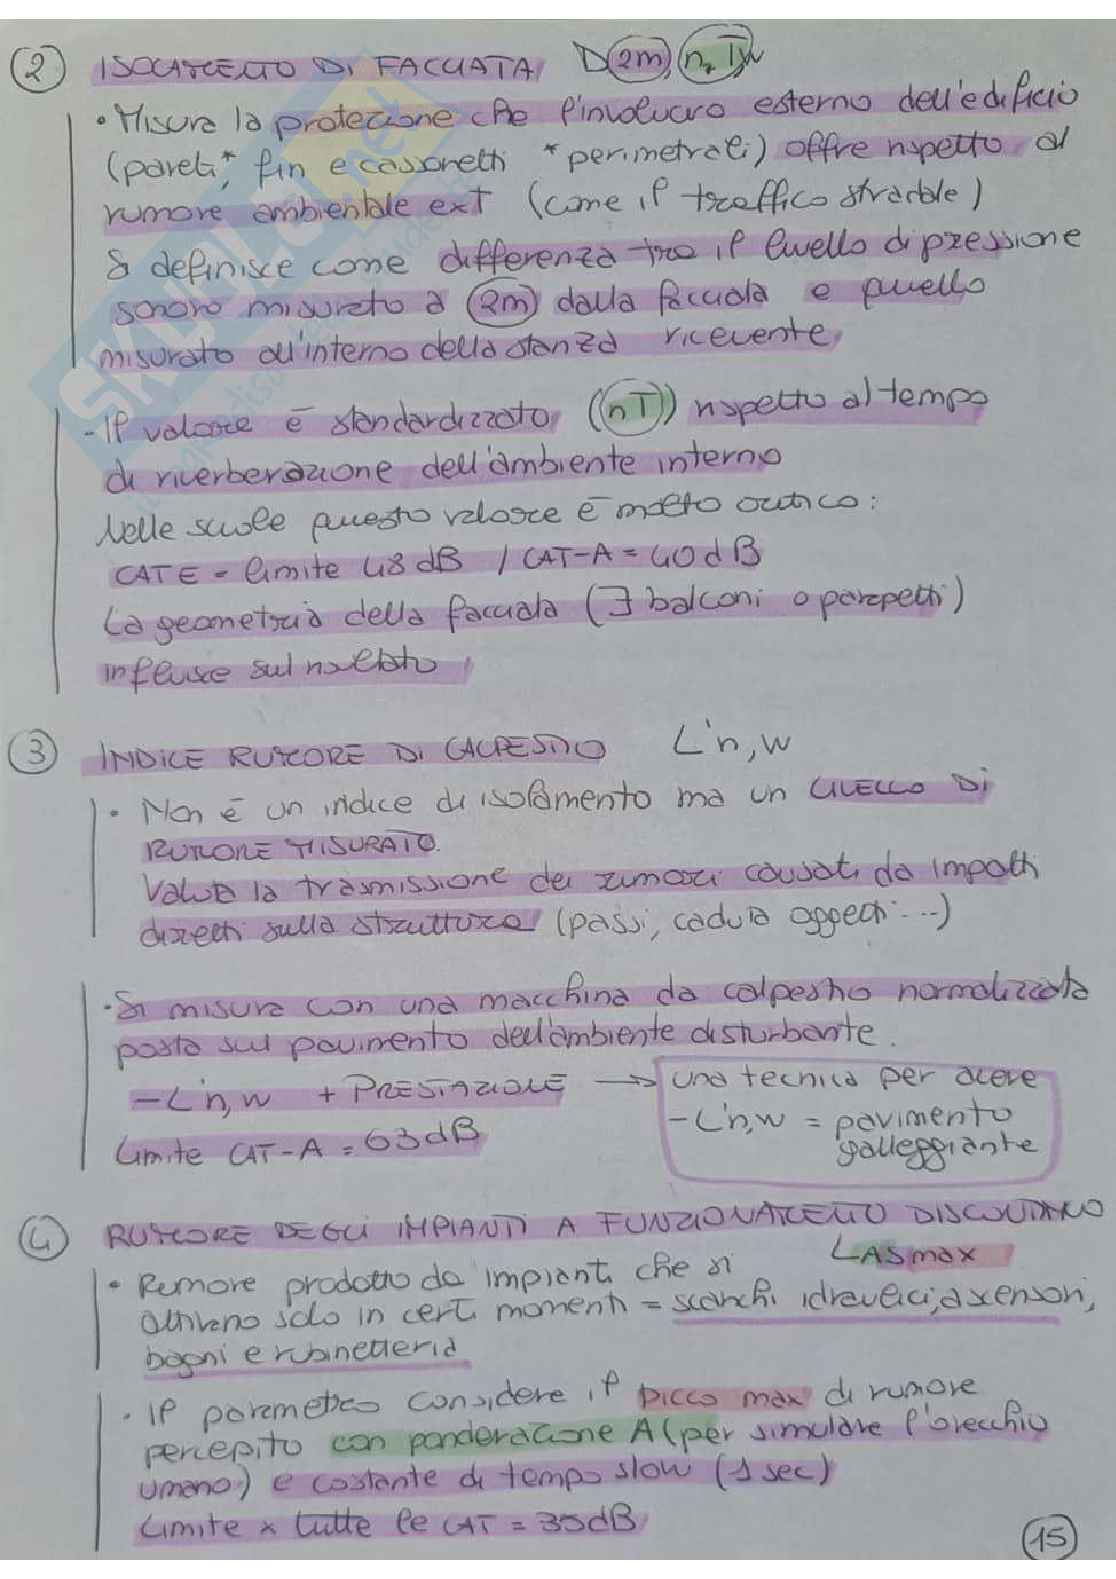 2 ISOLAMENTO DI FACCIATA D2m, nT,w
• Misura la protezione che l'involucro esterno dell'edificio
(pareti*, fin e cassonetti *perimetrali) offre rispetto al
rumore ambientale ext (come il traffico stradale)
Si definisce come differenza tra il livello di pressione
sonoro misurato a 2m dalla facciata e quello
misurato all'interno della stanza ricevente
- Il valore è standardizzato (nT) rispetto al tempo
di riverberazione dell'ambiente interno
Nelle scuole questo valore è molto critico:
CAT E - limite 48 dB / CAT-A = 40 dB
La geometria della facciata (∃ balconi o parapetti)
influisce sul risultato
3 INDICE RUMORE DI CALPESTIO L'n,w
• Non è un indice di isolamento ma un LIVELLO DI
RUMORE MISURATO.
Valuta la trasmissione dei rumori causati da impatti
diretti sulla struttura (passi, caduta oggetti ...)
• Si misura con una macchina da calpestio normalizzata
posta sul pavimento dell'ambiente disturbante.
- L'n,w + PRESTAZIONE → una tecnica per avere
- L'n,w = pavimento
galleggiante
Limite CAT-A = 63 dB
4 RUMORE DEGLI IMPIANTI A FUNZIONAMENTO DISCONTINUO
LASmax
• Rumore prodotto da impianti che si
attivano solo in certi momenti = scarichi idraulici, ascensori,
bagni e rubinetteria
• Il parametro considera il picco max di rumore
percepito con ponderazione A (per simulare l'orecchio
umano) e costante di tempo slow (1 sec)
Limite x tutte le CAT = 35 dB
15
SKUOLA.net